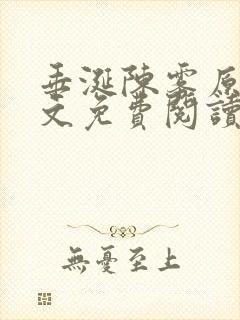 垂涎陳雾原
文免費閱讀
無憂至上